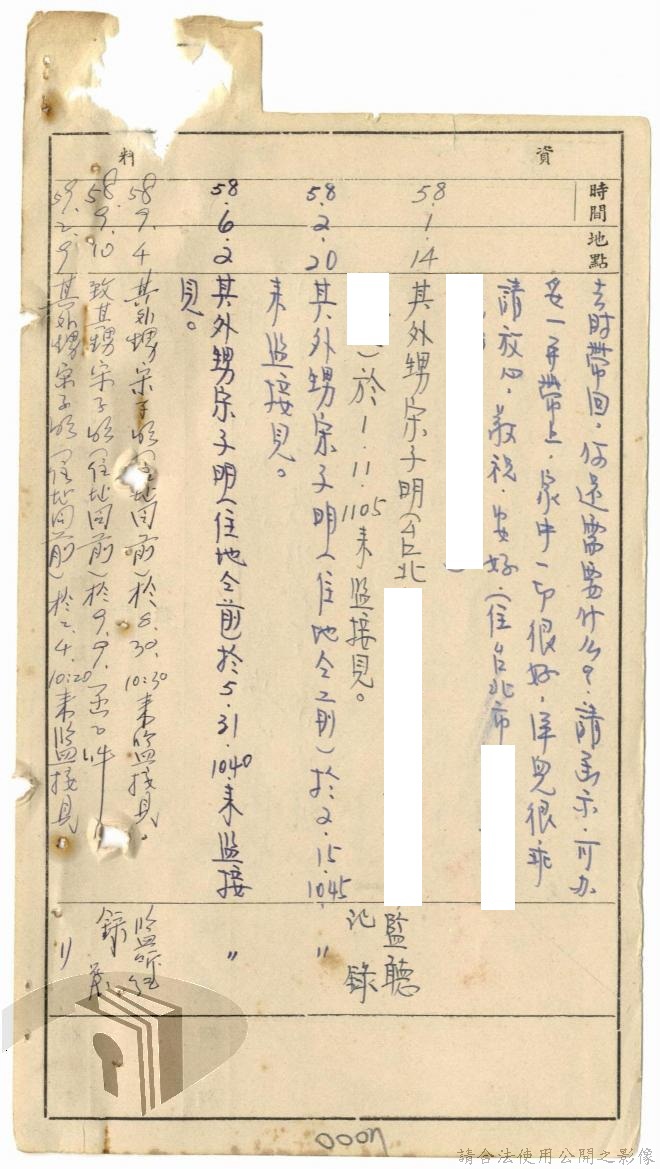 資料
時間
地點
去时帶回,何還需要什么?請函示,可办
妥一并帶上,家中一切很好,洋兒很乖
請放心,敬祝,安好(住台北市
58.1.14 其外甥宋子明(台北
)於1.11.1105來監接見。 監聽記錄
58.2.20 其外甥宋子明(住地仝前)於2.15.1045
來監接見。 〃
58.6.2 其外甥宋子明(住地仝前於5.31.1040.來監接
見。 〃
58.9.4 其外甥宋子明(住址同前)於8.30.10:30來監接見。 監听紀錄
58.9.10 致其甥宋子明(住址同前)於9.9.函乙件
59.2.9 其外甥宋子明(住址同前)於2.4.10:20來監接見 〃
4000
請合法使用公開之影像